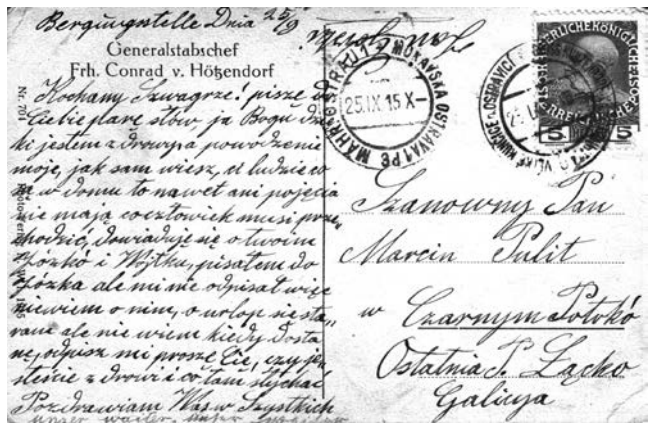 Bergungstelle Dnia 25/9
Generalstabschef
Frh. Conrad v. Hötzendorf
Nr. 701
Kochany Szwagrze! pisze do
Ciebie pare słów, ja Bogu dzę
ki jestem zdrowy a powodzenie
moje, jak sam wiesz, ci ludzie co
są w domu to nawet ani pojęcia
nie mają co człowiek musi prze
chodzić, dowiaduje się o twoim
Józko i Wojtku, pisałem do
Józka ale mi nie odpisał więc
niewiem o nim, o urlop się sta„
ram ale nie wiem kiedy dosta
ne, odpisz mi prosze Cie, czy je„
steście zdrowi i co tam słychać
Pozdrawiam Was w Szystkich
MÄHR. OSTRAU 1
MORAVSKA OSTRAVA 1
25.IX.15 X-
5
5
Szanowny Pan
Marcin Pulit
w Czarnym Potokó
Ostatnia P. Łącko
Galicya